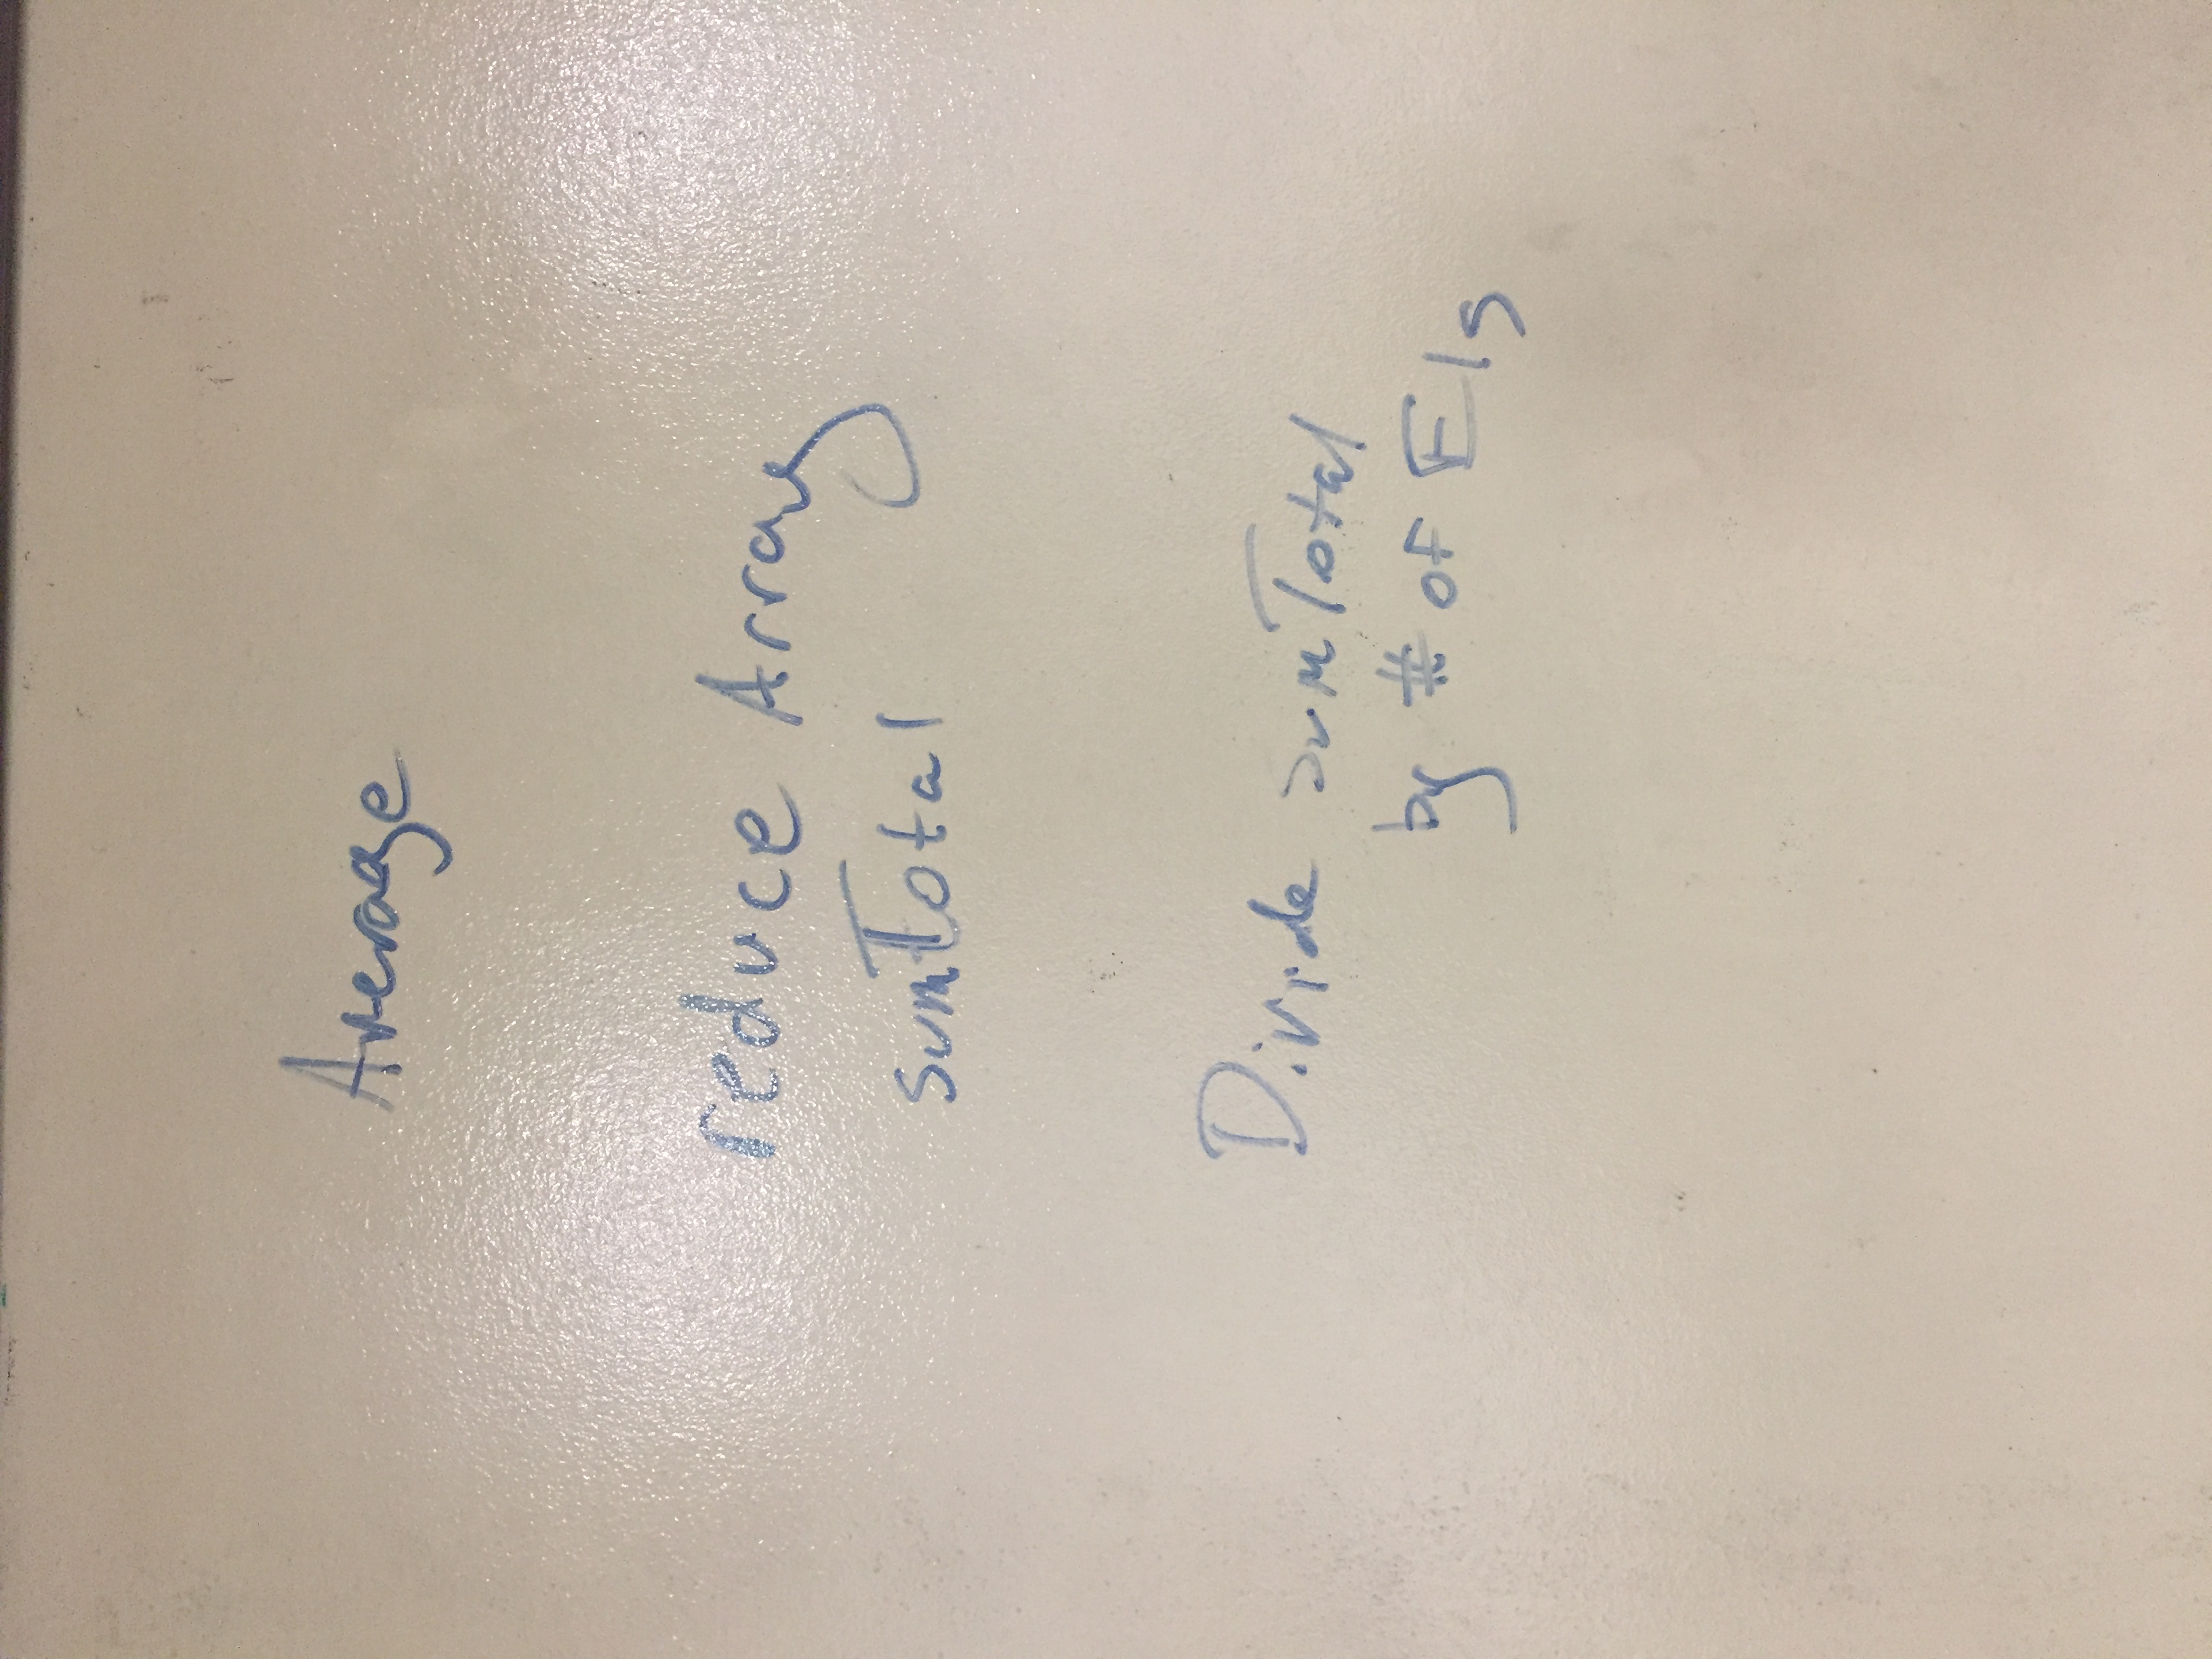 Average
reduce Array
sumTotal
Divide sumTotal
by # of Els